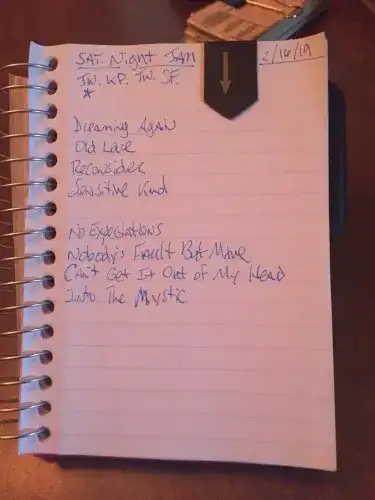 SAT. Night JAM 2/16/19
JW. KP. TW. SF.
*
Dreaming Again
Old Love
Reconsider
Sensitive Kind
No Expectations
Nobody's Fault But Mine
Can't Get It Out of My Head
Into The Mystic